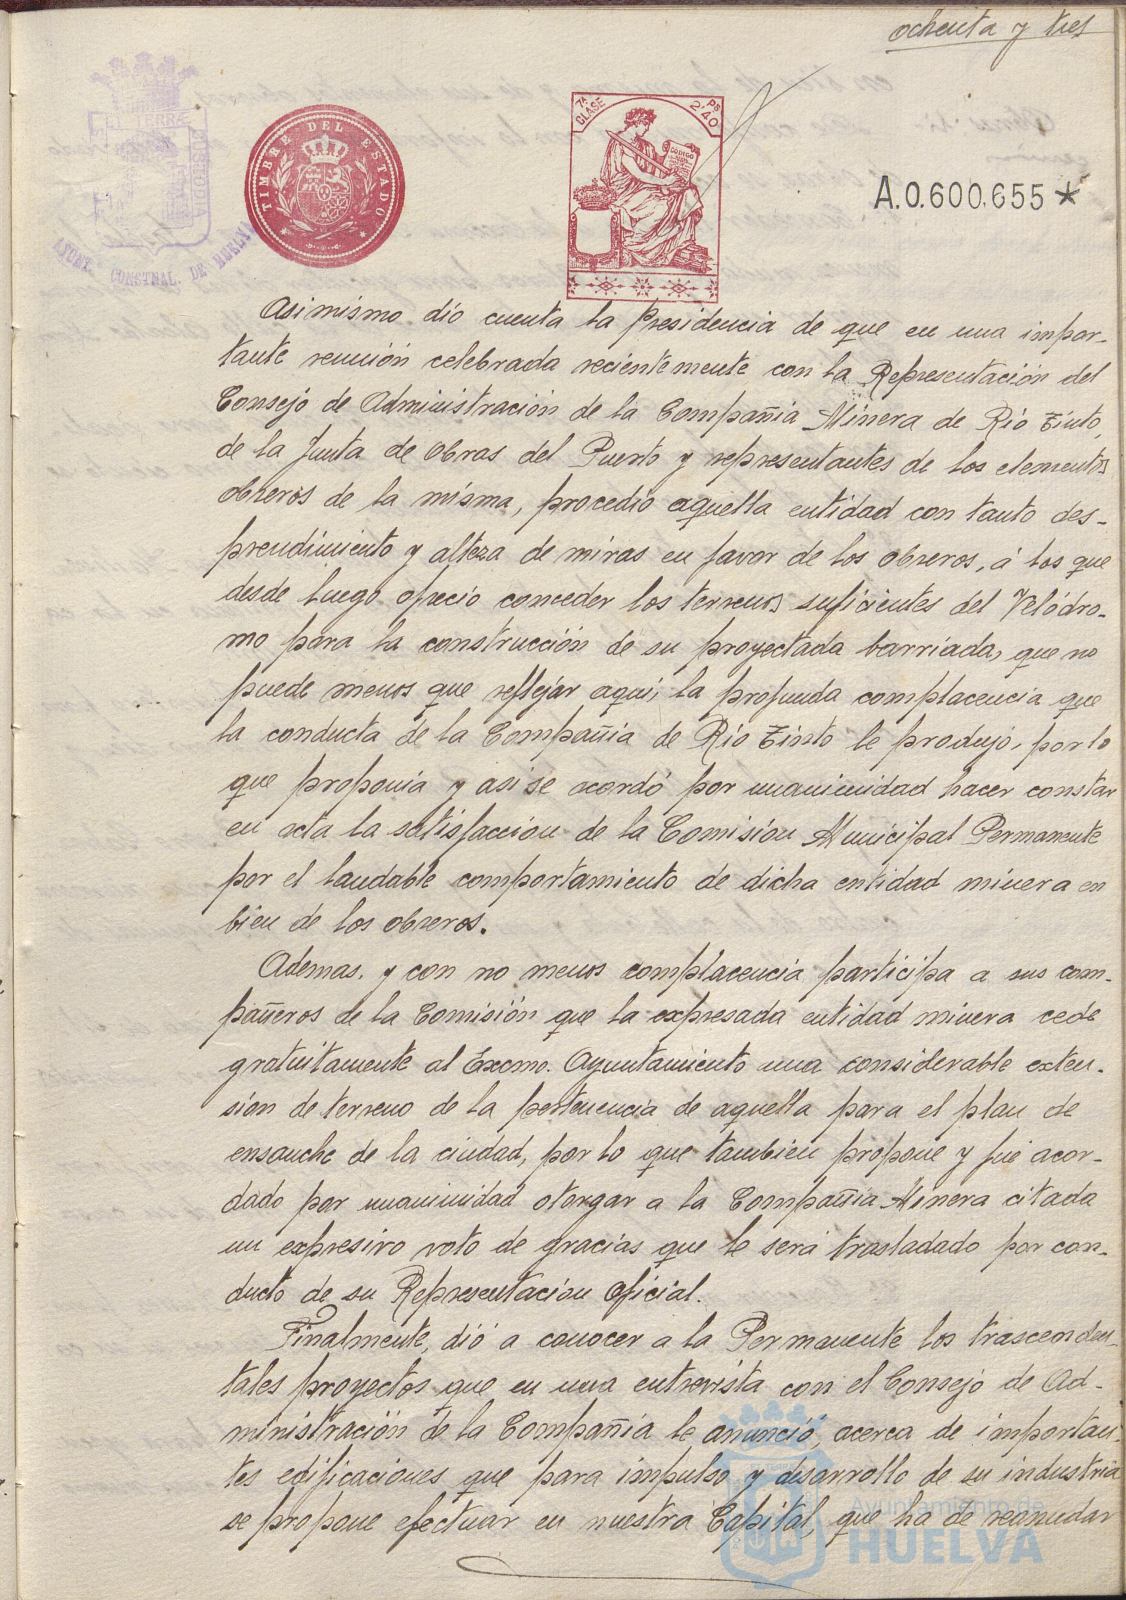 ochenta y tres
TIMBRE DEL ESTADO
7ª CLASE
Ps 2'40
CODIGO
A.0.600.655*
AYUNT. CONSTNAL. DE HUELVA
Asimismo dió cuenta la Presidencia de que en una impor-
tante reunión celebrada recientemente con la Representación del
Consejo de Administración de la Compañia Minera de Rio Tinto,
de la Junta de Obras del Puerto y representantes de los elementos
obreros de la misma, procedio aquella entidad con tanto des-
prendimiento y alteza de miras en favor de los obreros, á los que
desde luego ofrecio conceder los terrenos suficientes del Velódro-
mo para la construcción de su proyectada barriada, que no
puede menos que reflejar aqui, la profunda complacencia que
la conducta de la Compañia de Rio Tinto le produjo, por lo
que proponia y asi se acordó por unanimidad hacer constar
en acta la satisfaccion de la Comisión Municipal Permanente
por el laudable comportamiento de dicha entidad minera en
bien de los obreros.
Ademas, y con no menos complacencia participa a sus com-
pañeros de la Comisión que la expresada entidad minera cede
gratuitamente al Excmo. Ayuntamiento una considerable exten-
sion de terreno de la pertenencia de aquella para el plan de
ensanche de la ciudad, por lo que tambien propone y fue acor-
dado por unanimidad otorgar a la Compañia Minera citada
un expresivo voto de gracias que le será trasladado por con-
ducto de su Representacion Oficial.
Finalmente, dió a conocer a la Permanente los trascenden-
tales proyectos que en una entrevista con el Consejo de Ad-
ministración de la Compañia le anunció, acerca de importan-
tes edificaciones que para impulso y desarrollo de su industria
se propone efectuar en nuestra Capital, que ha de reanudar
Ayuntamiento de
HUELVA